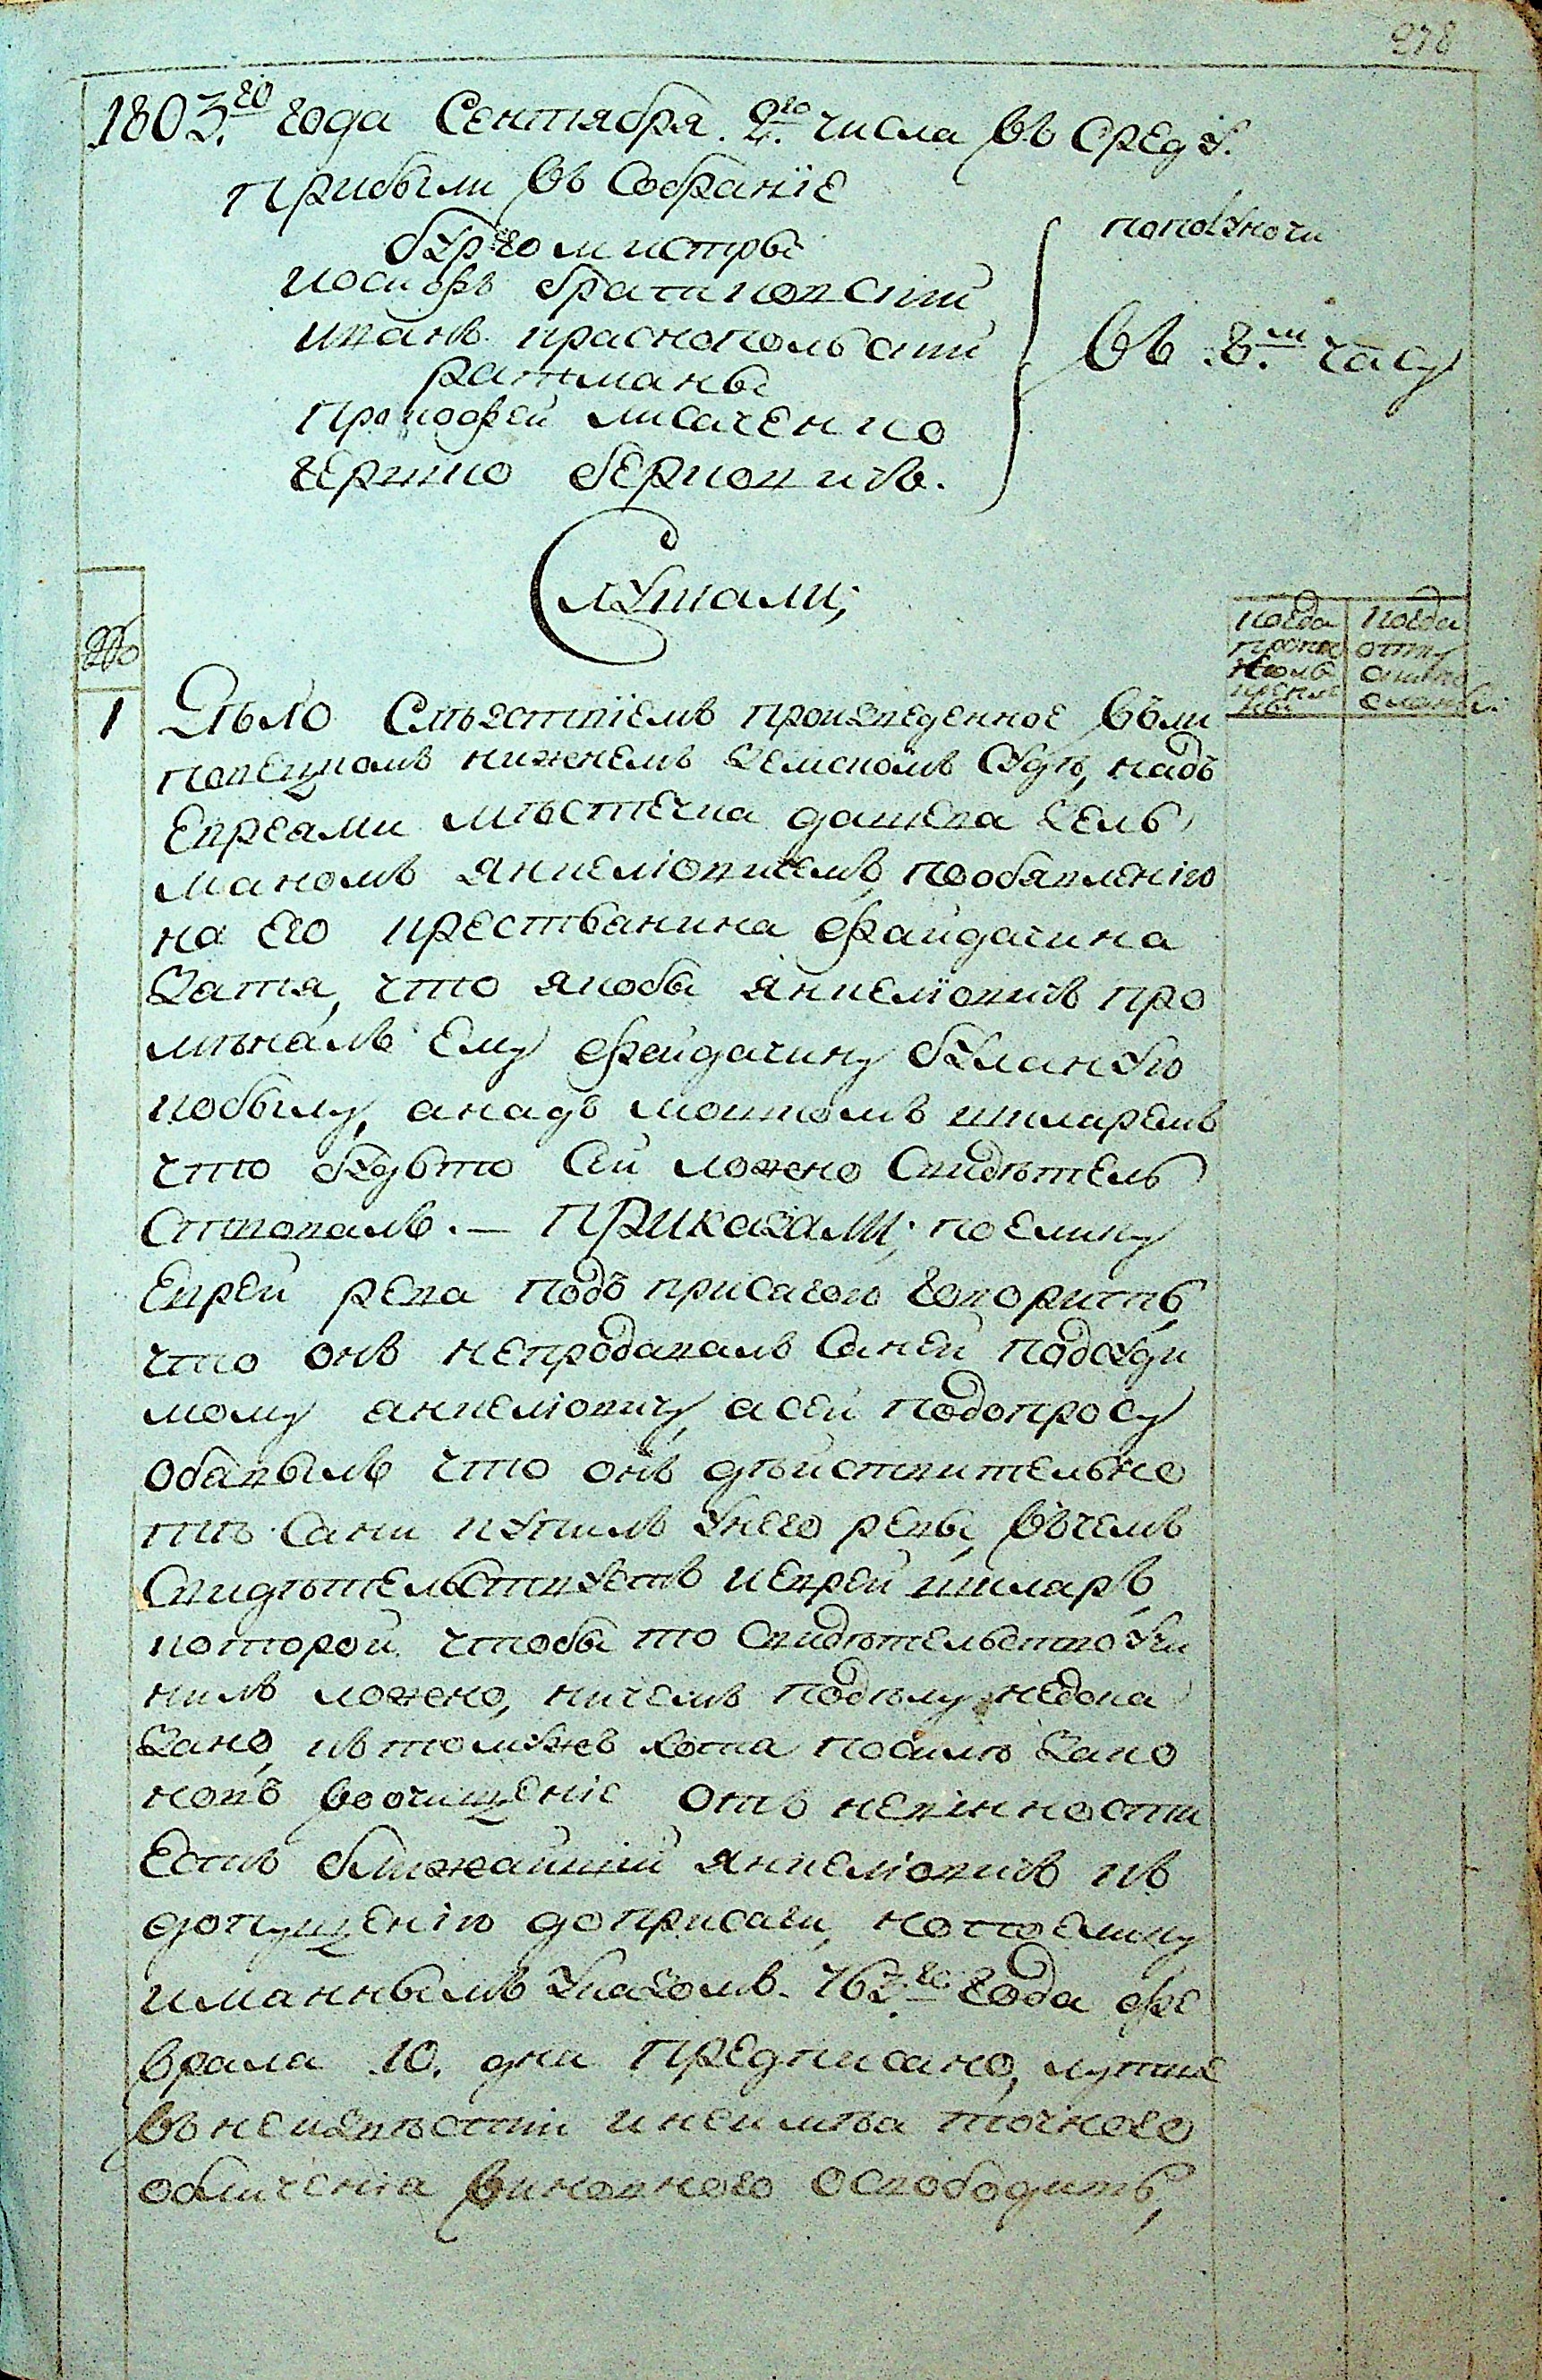 278
1803.го года Сентября 2.го числа въ Среду.
Прибыли въ Собранїе
бургомистры
иосифъ братковский
иванъ краснопольский
ратманы
Прокофей лисаченко
гершко берковичъ.
пополуночи
въ 8.м часу
Слушали;
№
когда
когда
1 Дѣло Слѣдствіемъ произведенное въ ли
повецкомъ нижнемъ Земскомъ Судѣ, надъ
Евреами мѣстечка дашева Зель
маномъ Янкеліовичемъ, пообявленію
на его крестьанина Файдачина
Затя, что якобы Янкелїовичъ про
мѣналъ Ему Файдачину буланую
кобылу, а надъ мошкомъ шкларемъ
что будьто Сей ложно Свидѣтель
Ствовалъ. — Приказали; поелику
Еврей рева подъ присагою говоритъ,
что онъ непродавалъ Саней подсуди
мому анкеліовичу, а сей подопросу
обавылъ что онъ дѣйствительно
тѣ Сани купилъ унего ревы, въчемъ
Свидѣтельствуетъ и Еврей шкларъ,
которой чтобы то Свидѣтельство учи
нилъ ложно, ничемъ подѣлу недока
Зано, къ томужъ хотя посилѣ Зако
новъ воочищеніе отъ невінности
Естъ ближайший Янкеліовичъ къ
допущенію доприсаги, но поелику
иманнымъ Указомъ 763.го года фе
врала 10. дня предписано, лутше
въ неизвѣстіи и неимѣа точного
обличеніа виновного освободить,